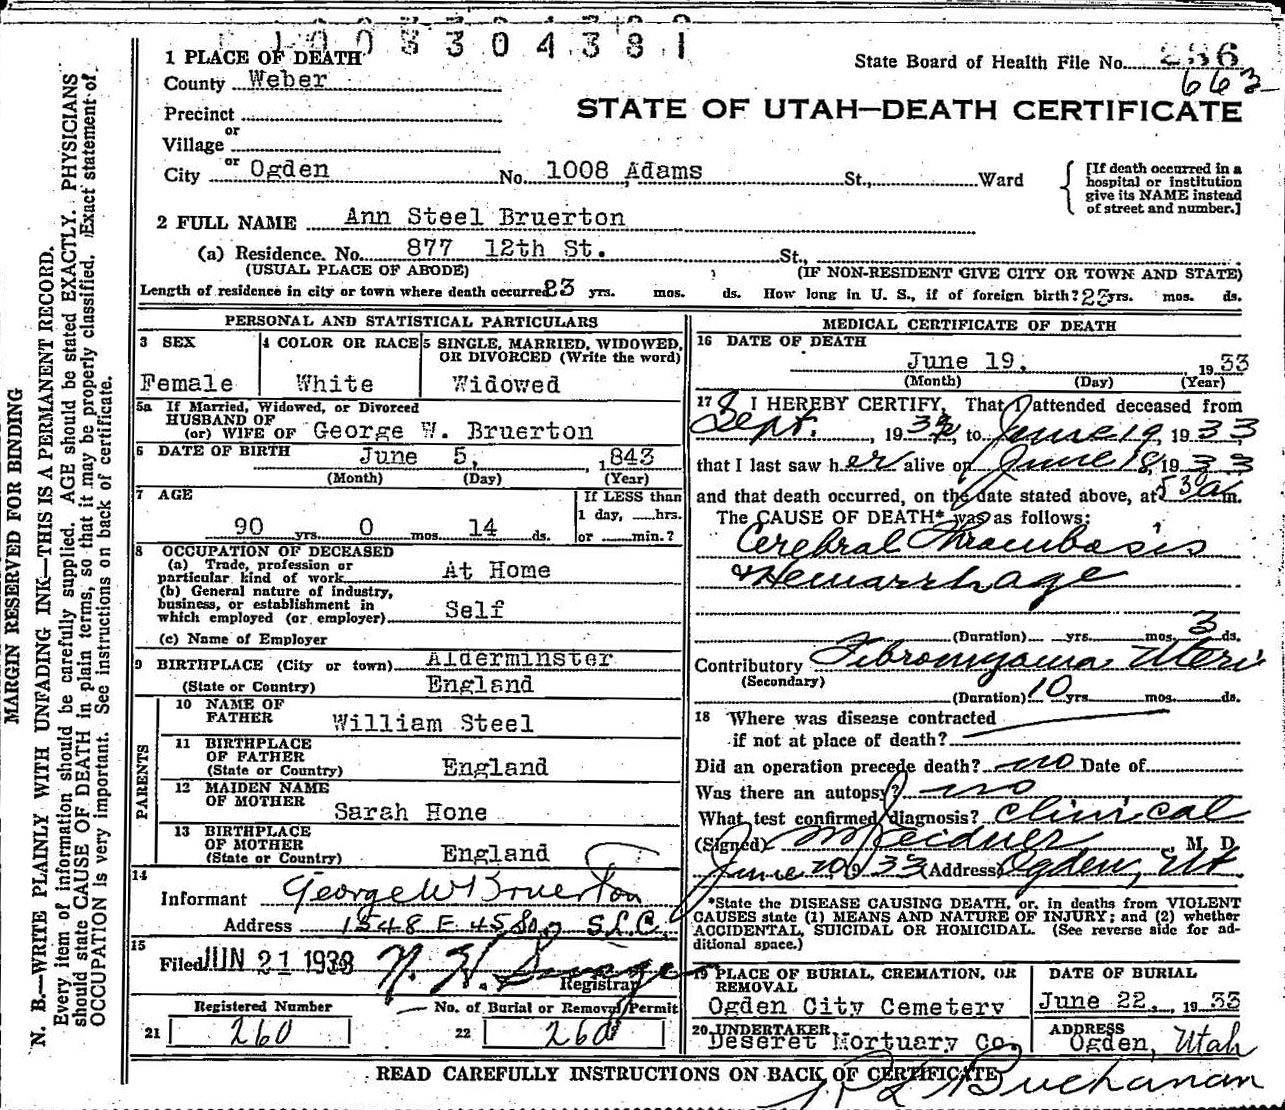 1003304381
1 PLACE OF DEATH
State Board of Health File No. 236
County Weber
663
STATE OF UTAH—DEATH CERTIFICATE
Precinct
or
Village
or
City Ogden No. 1008 Adams St., Ward
[If death occurred in a
hospital or institution
give its NAME instead
of street and number.]
2 FULL NAME Ann Steel Bruerton
(a) Residence. No. 877 12th St. St.,
(USUAL PLACE OF ABODE) (IF NON-RESIDENT GIVE CITY OR TOWN AND STATE)
Length of residence in city or town where death occurred 23 yrs. mos. ds. How long in U. S., if of foreign birth? 23 yrs. mos. ds.
PERSONAL AND STATISTICAL PARTICULARS
3 SEX
Female
4 COLOR OR RACE
White
5 SINGLE, MARRIED, WIDOWED,
OR DIVORCED (Write the word)
Widowed
5a If Married, Widowed, or Divorced
HUSBAND OF
(or) WIFE OF George W. Bruerton
6 DATE OF BIRTH June 5, 1843
(Month) (Day) (Year)
7 AGE
90 yrs. 0 mos. 14 ds.
If LESS than
1 day, ......hrs.
or ......min.?
8 OCCUPATION OF DECEASED
(a) Trade, profession or
particular kind of work At Home
(b) General nature of industry,
business, or establishment in
which employed (or employer) Self
(c) Name of Employer
9 BIRTHPLACE (City or town) Alderminster
(State or Country) England
PARENTS
10 NAME OF
FATHER William Steel
11 BIRTHPLACE
OF FATHER
(State or Country) England
12 MAIDEN NAME
OF MOTHER Sarah Hone
13 BIRTHPLACE
OF MOTHER
(State or Country) England
14
Informant George W Bruerton
Address 1548 E 45 So S.L.C.
15
Filed JUN 21 1933 N. H. Savage
Registrar
Registered Number
21 260
No. of Burial or Removal Permit
22 260
MEDICAL CERTIFICATE OF DEATH
16 DATE OF DEATH
June 19, 1933
(Month) (Day) (Year)
17 I HEREBY CERTIFY, That I attended deceased from
Sept. , 1932, to June 19, 1933
that I last saw her alive on June 18, 1933
and that death occurred, on the date stated above, at 530 a m.
The CAUSE OF DEATH* was as follows:
Cerebral Thrombosis
& Hemorrhage
(Duration) yrs. mos. 3 ds.
Contributory Fibromyoma Uteri
(Secondary)
(Duration) 10 yrs. mos. ds.
18 Where was disease contracted
if not at place of death?
Did an operation precede death? no Date of
Was there an autopsy? no
What test confirmed diagnosis? Clinical
(Signed) M. D.
June 20, 1933 Address Ogden, Ut
*State the DISEASE CAUSING DEATH, or, in deaths from VIOLENT
CAUSES state (1) MEANS AND NATURE OF INJURY; and (2) whether
ACCIDENTAL, SUICIDAL OR HOMICIDAL. (See reverse side for ad-
ditional space.)
19 PLACE OF BURIAL, CREMATION, OR
REMOVAL
Ogden City Cemetery
DATE OF BURIAL
June 22, 1933
20 UNDERTAKER
Deseret Mortuary Co.
ADDRESS
Ogden, Utah
READ CAREFULLY INSTRUCTIONS ON BACK OF CERTIFICATE
Buchanan
MARGIN RESERVED FOR BINDING
N. B.—WRITE PLAINLY WITH UNFADING INK—THIS IS A PERMANENT RECORD.
Every item of information should be carefully supplied. AGE should be stated EXACTLY. PHYSICIANS
should state CAUSE OF DEATH in plain terms, so that it may be properly classified. Exact statement of
OCCUPATION is very important. See instructions on back of certificate.